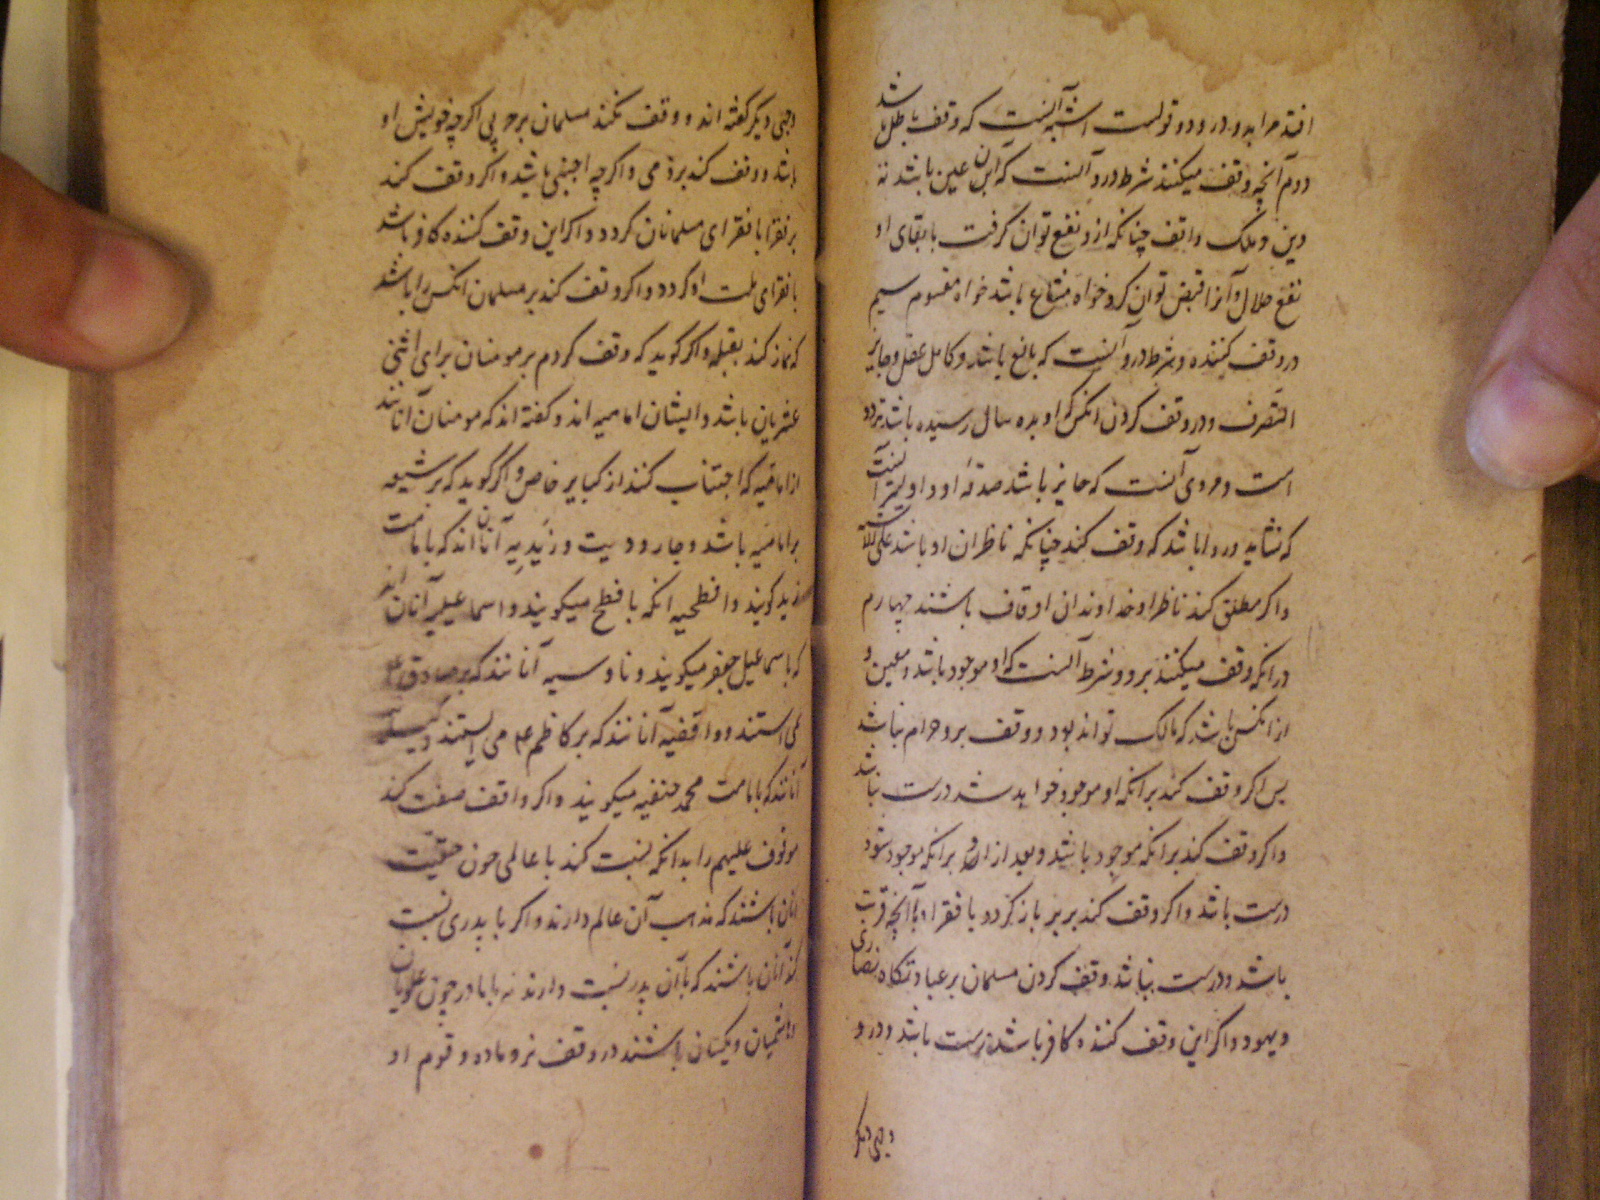 افتد مرا بدو در و دو قولست اشبه آنست که وقف باطل باشد
دوم آنچه وقف میکنند شرط در و آنست که آن عین باشد نه
دین و ملک واقف چنانکه ازو نفع توان گرفت با بقای او
نفع حلال و آنرا قبض توان کرد خواه مشاع باشد خواه مقسوم سیم
در وقف کننده و شرط در و آنست که بالغ باشد و کامل عقل و جایز
التصرف و در وقف کردن انکس که او بده سال رسیده باشد تردد
است و مروی آنست که جایز باشد صدقه او و اولیتر آنست
که نشاید و روا باشد که وقف کند چنانکه ناظر ان او باشد علی
واکر مطلق کند ناظر او خداوندان اوقاف باشند چهارم
در انکه وقف میکنند برو و شرط آنست که او موجود باشد و معین و
از انکس باشد که مالک تواند بود و وقف برو حرام نباشد
پس اکر وقف کند بر انکه او موجود خواهد شد درست نباشد
واکر وقف کند بر انکه موجود باشد و بعد از او بر انکه موجود شود
درست باشد واکر وقف کند بر بر باز کردد با فقرا و با آنچه قربت
باشد و درست نباشد وقف کردن مسلمان بر عبادتکاه نصاری
و یهود واکر این وقف کننده کافر باشد درست باشد و درو
وجهی دیکر
وجهی دیکر کفته اند و وقف نکند مسلمان بر حربی اکرچه خویش او
باشد و وقف کند بر ذمی و اکرچه اجنبی باشد واکر وقف کند
بر فقرا با فقرای مسلمانان کردد واکر این وقف کننده کافر باشد
با فقرای ملت او کردد واکر وقف کند بر مسلمان انکس را باشد
که نماز کند بقبله واکر کوید که وقف کردم بر مومنان برای اثنی
عشریان باشد و ایشان امامیه اند و کفته اند که مومنان آنانند
از امامیه که اجتناب کنند از کبایر خاص واکر کوید که بر شیعه
بر امامیه باشد و جارودیت و زیدیه آنان اند که بامامت
زید کویند و افطحیه انکه بافطح میکویند و اسماعیلیه آنان اند
که باسماعیل جعفر میکویند و ناوسیه آنانند که بر صادق ع
می استند و واقفیه آنانند که بر کاظم ع می ایستند و کیسانیه
آنانند که بامامت محمد حنفیه میکویند واکر واقف صفت کند
موقوف علیهم را بدانکه نسبت کند با عالمی چون حنفیت
انان باشند که مذهب آن عالم دارند واکر با پدری نسبت
کند آنان باشند که بآن پدر نسبت دارند نه با مادر چون علویان
و هاشمیان و یکسان باشند در وقف نر و ماده و قوم او